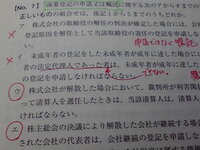 [No. 7] 商業登記の申請又は嘱託に関する次のアからオまでの
正しいものの組合せは，後記１から５までのうちどれか。
ア 株式会社の取締役の解任の判決が確定した場合には，会
登記原因を解任として当該取締役の退任の登記を申請し
申請ではなく嘱託
イ 未成年者の登記をした未成年者が成年に達した場合に
者の法定代理人であった者は，未成年者が成年に達し
の登記を申請しなければならない。
ウ 株式会社が解散した場合において，裁判所が利害関係
って清算人を選任したときは，当該清算人は，清算人
ければならない。
エ 株主総会の決議により解散した株式会社が継続する
された会社の代表者は，会社継続の登記を申請しな